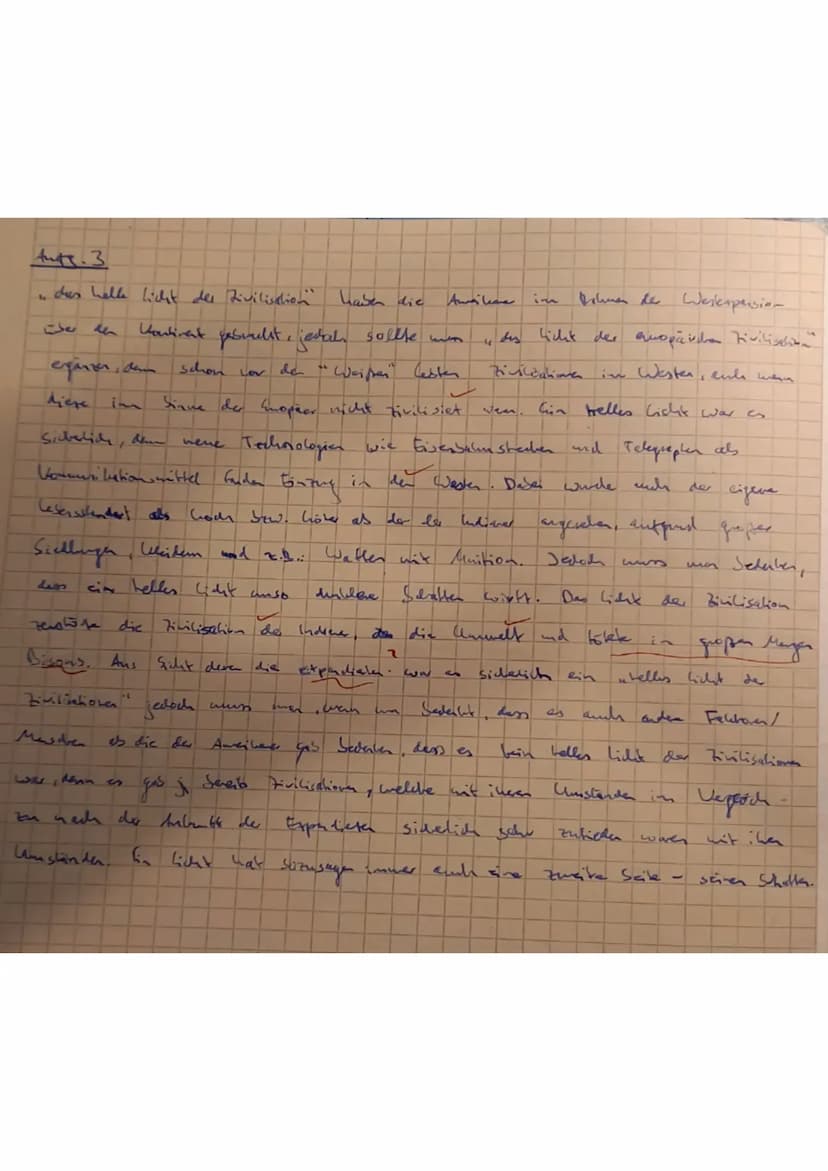 Aufg. 3
"das helle Licht der Zivilisation" haben die Amerikaner im Rahmen der Westexpansion
über den Kontinent gebracht, jedoch sollte man "das Licht der europäischen Zivilisation"
ergänzen, denn schon vor den "Weißen" lebten Zivilisationen im Westen, auch wenn
diese im Sinne der Europäer nicht zivilisiert waren. Ein helles Licht war es
sicherlich, denn neue Technologien wie Eisenbahnstrecken und Telegraphen als
Kommunikationsmittel fanden Einzug in den Westen. Dabei wurde auch der eigene
Lebensstandart als hoch bzw. höher als der der Indianer angesehen, aufgrund großer
Siedlungen, Kleidern und z.B.: Waffen mit Munition. Jedoch muss man bedenken,
dass ein helles Licht umso dunklere Schatten wirft. Das Licht der Zivilisation
zerstörte die Zivilisation der Indianer, die Umwelt und tötete in großen Mengen
Bisons. Aus Sicht derer die ? war es sicherlich ein "helles Licht der
Zivilisationen" jedoch muss man, wenn man bedenkt, dass es auch andere Faktoren/
Menschen als die der Amerikaner gab bedenken, dass es kein helles Licht der Zivilisationen
war, denn es gab ja bereits Zivilisationen, welche mit ihren Umständen im Vergleich
zu nach der Ankunft der sicherlich sehr zufrieden waren mit ihren
Umständen. Ein Licht hat sozusagen immer auch eine zweite Seite - seinen Schatten.